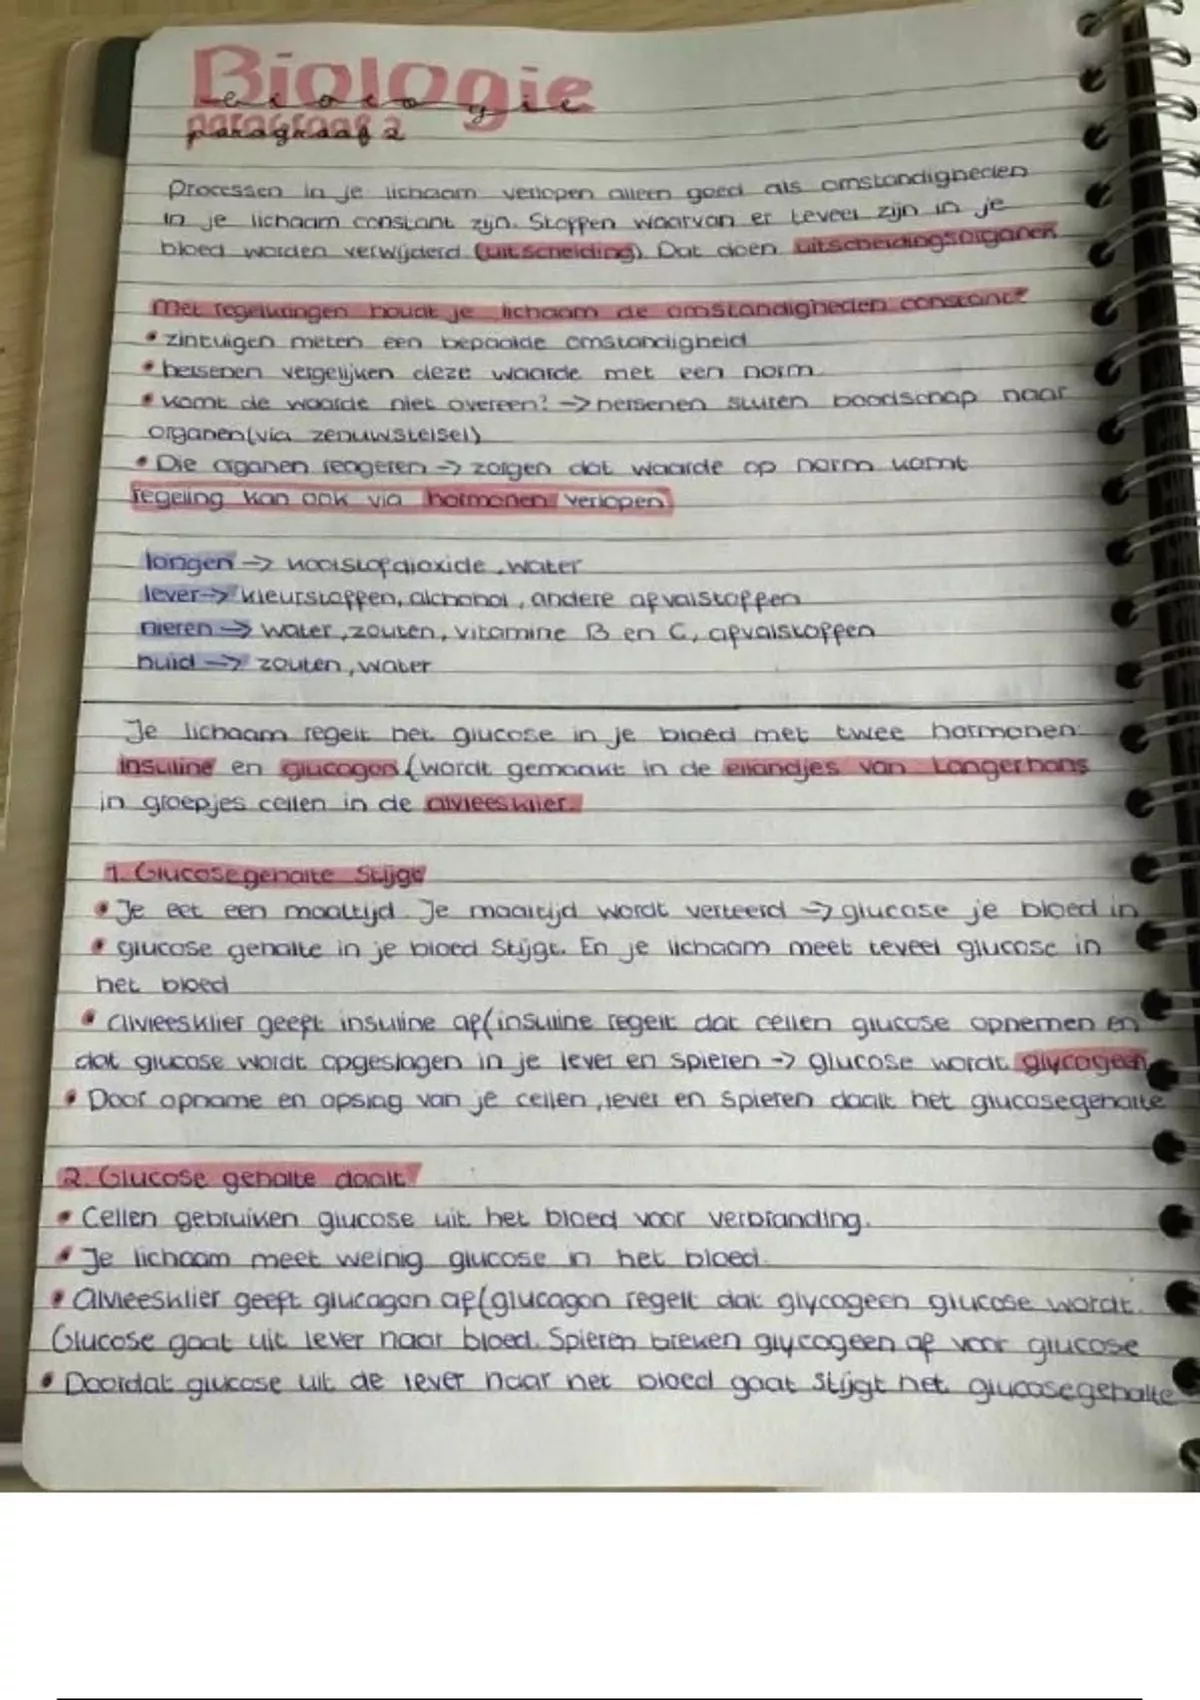 Biologie
biologie
paragraaf 2
Processen in je lichaam verlopen alleen goed als omstandigheden
in je lichaam constant zijn. Stoffen waarvan er teveel zijn in je
bloed worden verwijderd (uitscheiding). Dat doen uitscheidingsorganen
Met regelkringen houdt je lichaam de omstandigheden constant
• zintuigen meten een bepaalde omstandigheid
• hersenen vergelijken deze waarde met een norm
• komt de waarde niet overeen? -> hersenen sturen boodschap naar
organen (via zenuwstelsel)
• Die organen reageren -> zorgen dat waarde op norm komt
regeling kan ook via hormonen verlopen
longen -> koolstofdioxide, water
lever -> kleurstoffen, alchohol, andere afvalstoffen
nieren -> water, zouten, vitamine B en C, afvalstoffen
huid -> zouten, water
Je lichaam regelt het glucose in je bloed met twee hormonen:
insuline en glucagon (wordt gemaakt in de eilandjes van Langerhans
in groepjes cellen in de alvleesklier.
1. Glucosegehalte stijgt
• Je eet een maaltijd. Je maaltijd wordt verteerd -> glucose je bloed in
• glucose gehalte in je bloed stijgt. En je lichaam meet teveel glucose in
het bloed
• alvleesklier geeft insuline af (insuline regelt dat cellen glucose opnemen en
dat glucose wordt opgeslagen in je lever en spieren -> glucose wordt glycogeen
• Door opname en opslag van je cellen, lever en spieren daalt het glucosegehalte
2. Glucose gehalte daalt
• Cellen gebruiken glucose uit het bloed voor verbranding.
• Je lichaam meet weinig glucose in het bloed.
• Alvleesklier geeft glucagon af (glucagon regelt dat glycogeen glucose wordt.
Glucose gaat uit lever naar bloed. Spieren breken glycogeen af voor glucose
• Doordat glucose uit de lever naar het bloed gaat stijgt het glucosegehalte